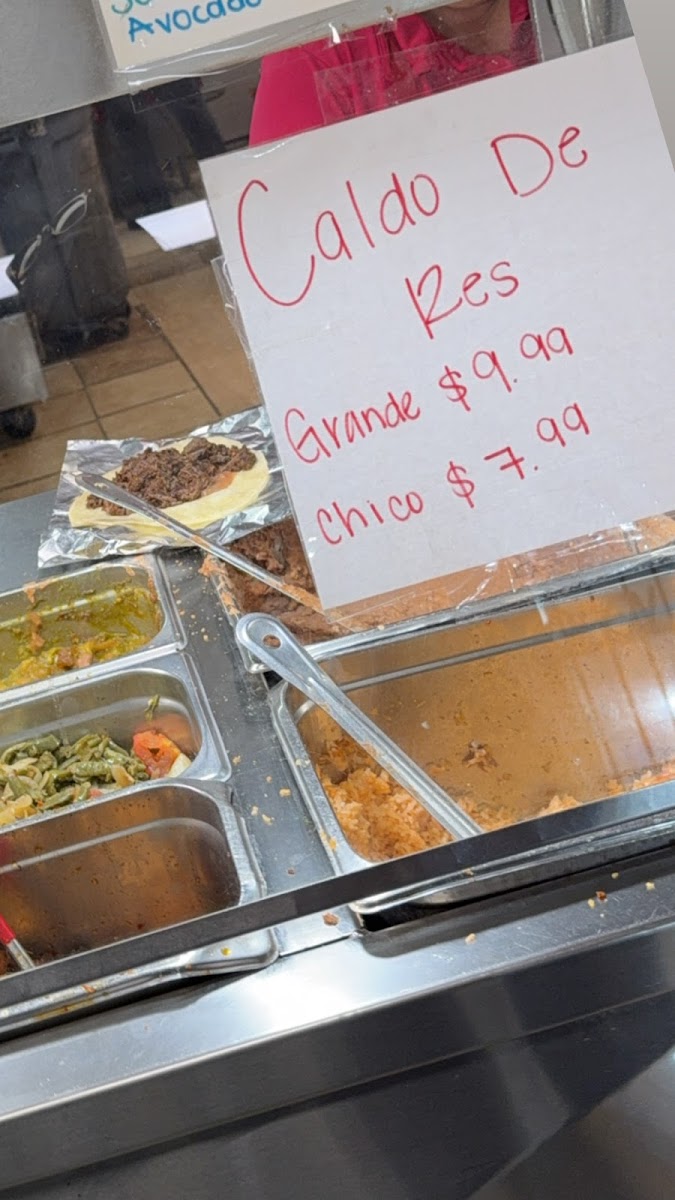 Avocado
Caldo De
Res
Grande $9.99
Chico $7.99